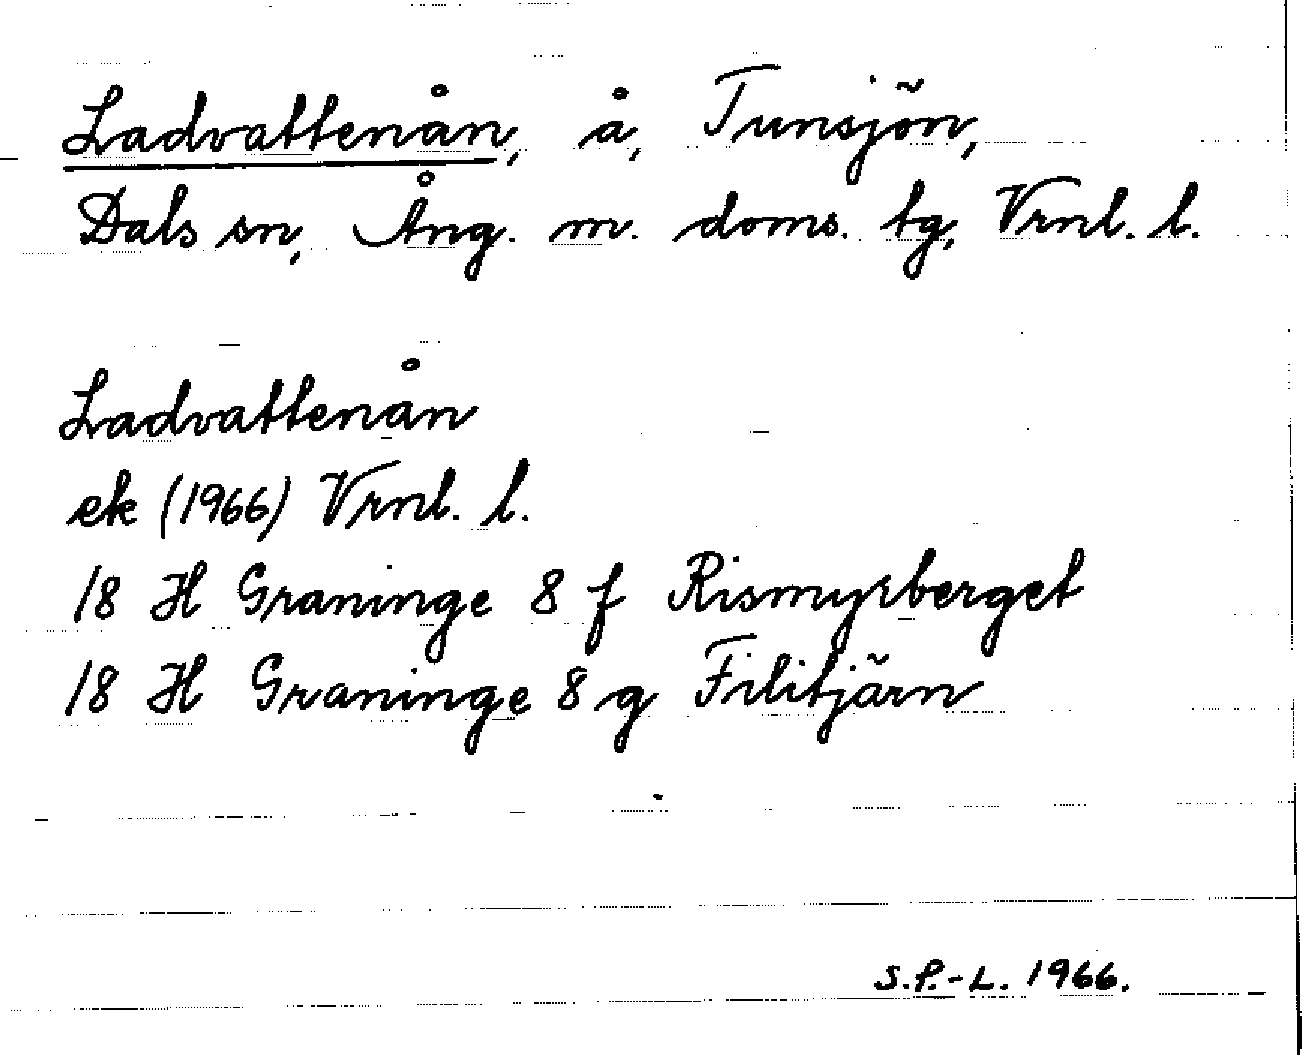 Ladvattenån, å, Tunsjön,
Dals sn, Ång. m. doms. tg, Vrnl. l.
Ladvattenån
ek (1966) Vrnl. l.
18 H Graninge 8 f Rismyrberget
18 H Graninge 8 g Filitjärn
S.P.-L. 1966.